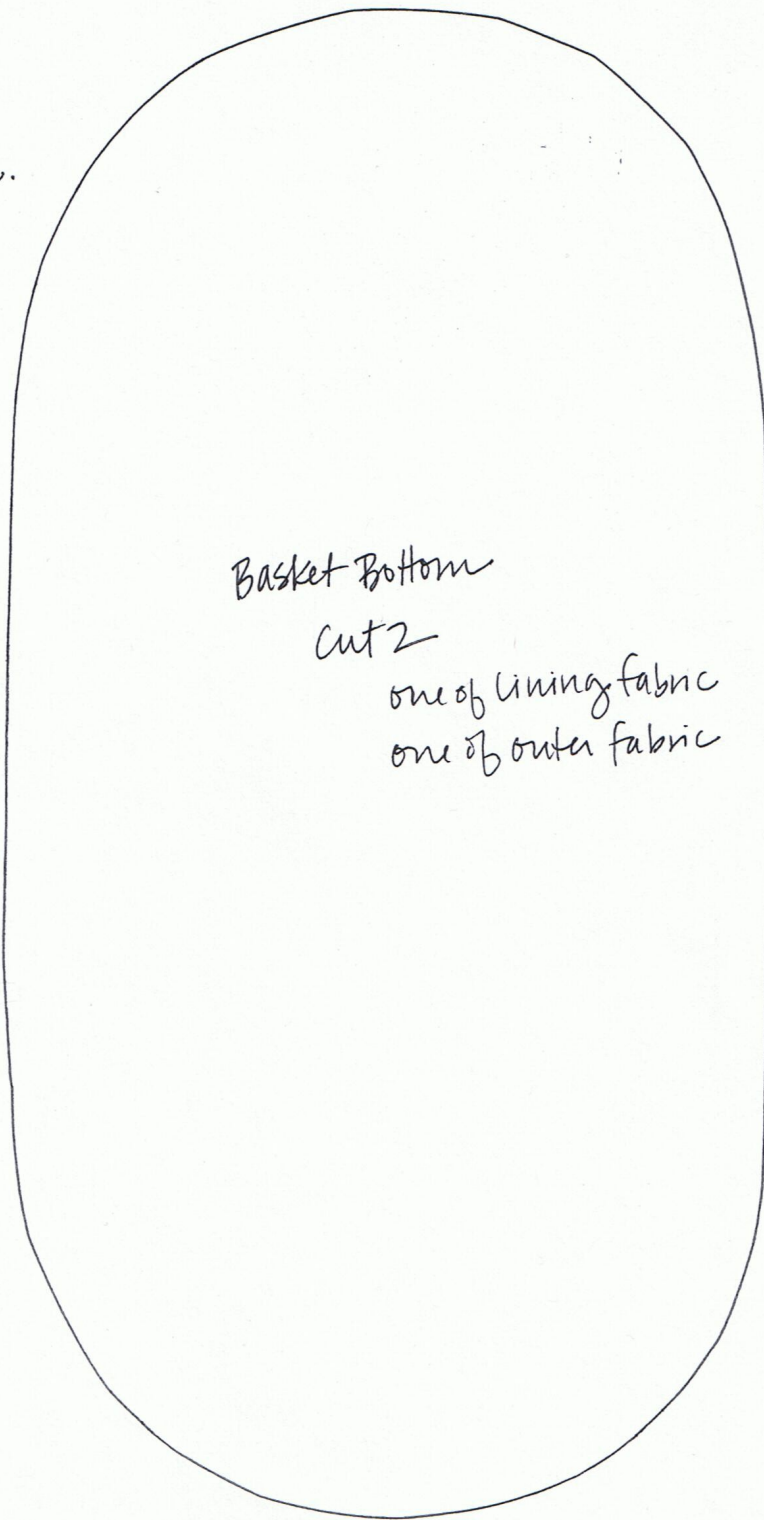 Basket Bottom
Cut 2
one of lining fabric
one of outer fabric